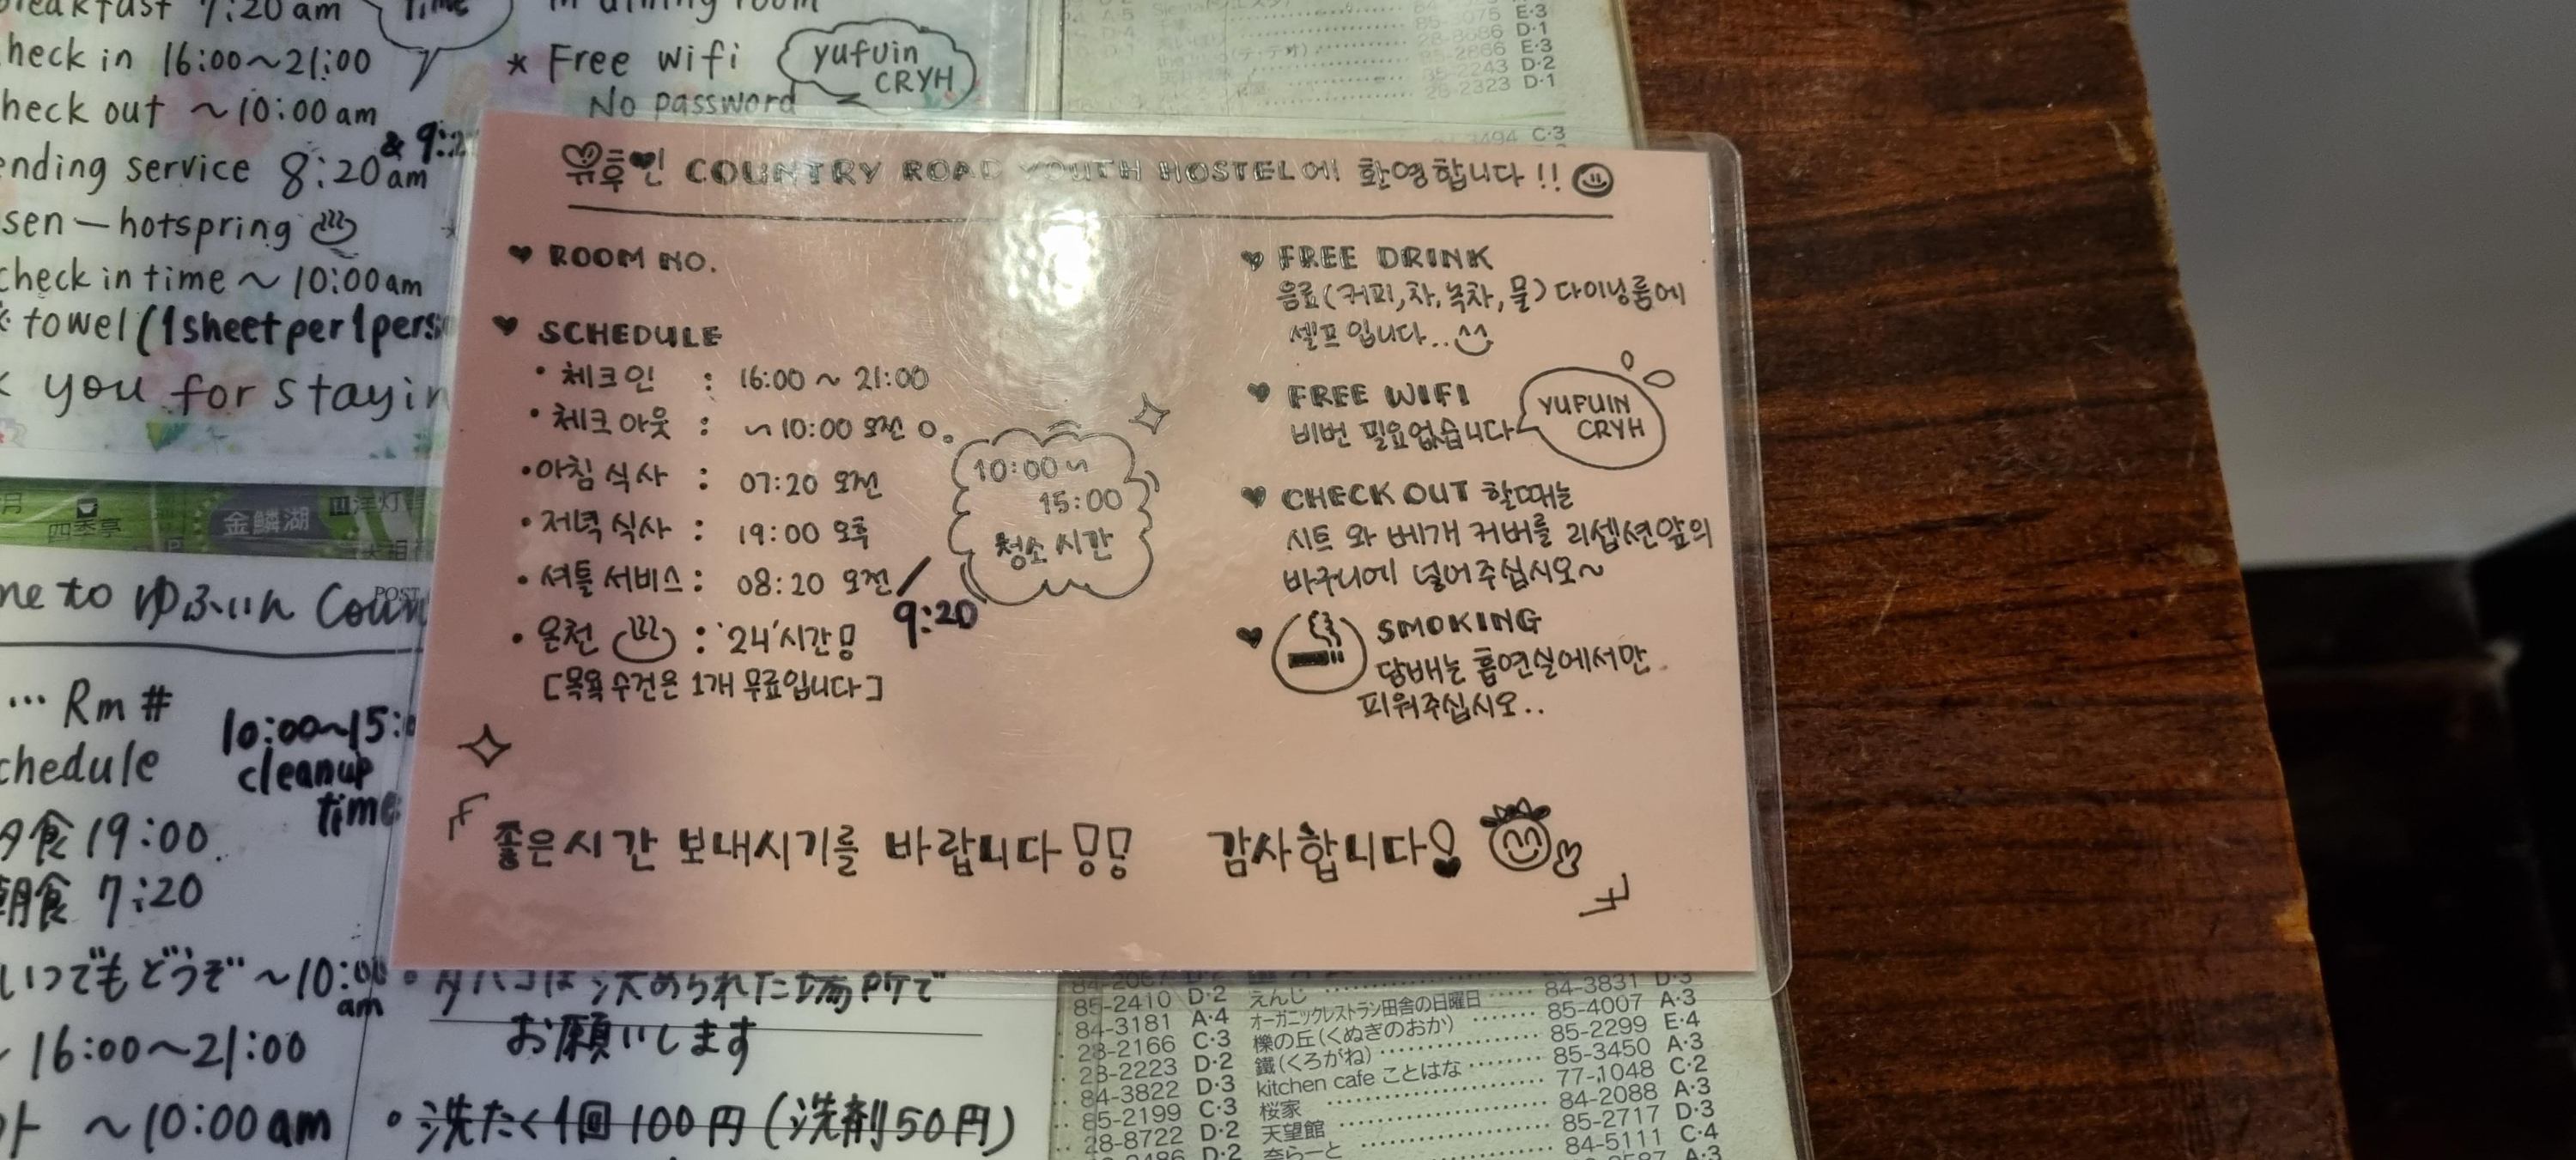 7:20 am
time
in dining room
check in 16:00~21:00
check out ~10:00 am
service 8:20 am
& 9:2
sen-hotspring
check in time ~ 10:00am
towel (1sheet per 1pers
you for stayin
* Free wifi
No password
yufuin
CRYH
E·3
28-8686 D·1
85-2866 E·3
85-2243 D·2
28-2323 D·1
3494 C·3
유후인 COUNTRY ROAD YOUTH HOSTEL에 환영합니다!!
♥ ROOM NO.
♥ SCHEDULE
• 체크인 : 16:00 ~ 21:00
• 체크아웃 : ~10:00 오전
• 아침식사 : 07:20 오전
• 저녁식사 : 19:00 오후
• 셔틀서비스 : 08:20 오전/
9:20
• 온천 : 24시간!
[목욕수건은 1개 무료입니다]
10:00~
15:00
청소시간
♥ FREE DRINK
음료(커피,차,녹차,물)다이닝룸에
셀프입니다..
♥ FREE WIFI
비번 필요없습니다
YUFUIN
CRYH
♥ CHECK OUT 할때는
시트 와 베개 커버를 리셉션앞의
바구니에 넣어주십시오~
♥ SMOKING
담배는 흡연실에서만
피워주십시오..
좋은시간 보내시기를 바랍니다!! 감사합니다!
四季亭
金鱗湖
洋灯
POST
me to ゆふいん Coun
... Rm #
chedule
10:00~15:0
cleanup
time
夕食 19:00
朝食 7:20
いつでもどうぞ ~10:00
am
16:00~21:00
~10:00am
•タバコは決められた場所で
お願いします
•洗たく1回100円(洗剤50円)
85-2410 D·2 えんじ 84-3831 D·3
84-3181 A·4 オーガニックレストラン田舎の日曜日 85-4007 A·3
28-2166 C·3 櫟の丘(くぬぎのおか) 85-2299 E·4
28-2223 D·2 鐵(くろがね) 85-3450 A·3
84-3822 D·3 kitchen cafe ことはな 77-1048 C·2
85-2199 C·3 桜家 84-2088 A·3
28-8722 D·2 天望館 85-2717 D·3
D·2 奈らーと 84-5111 C·4
A·3